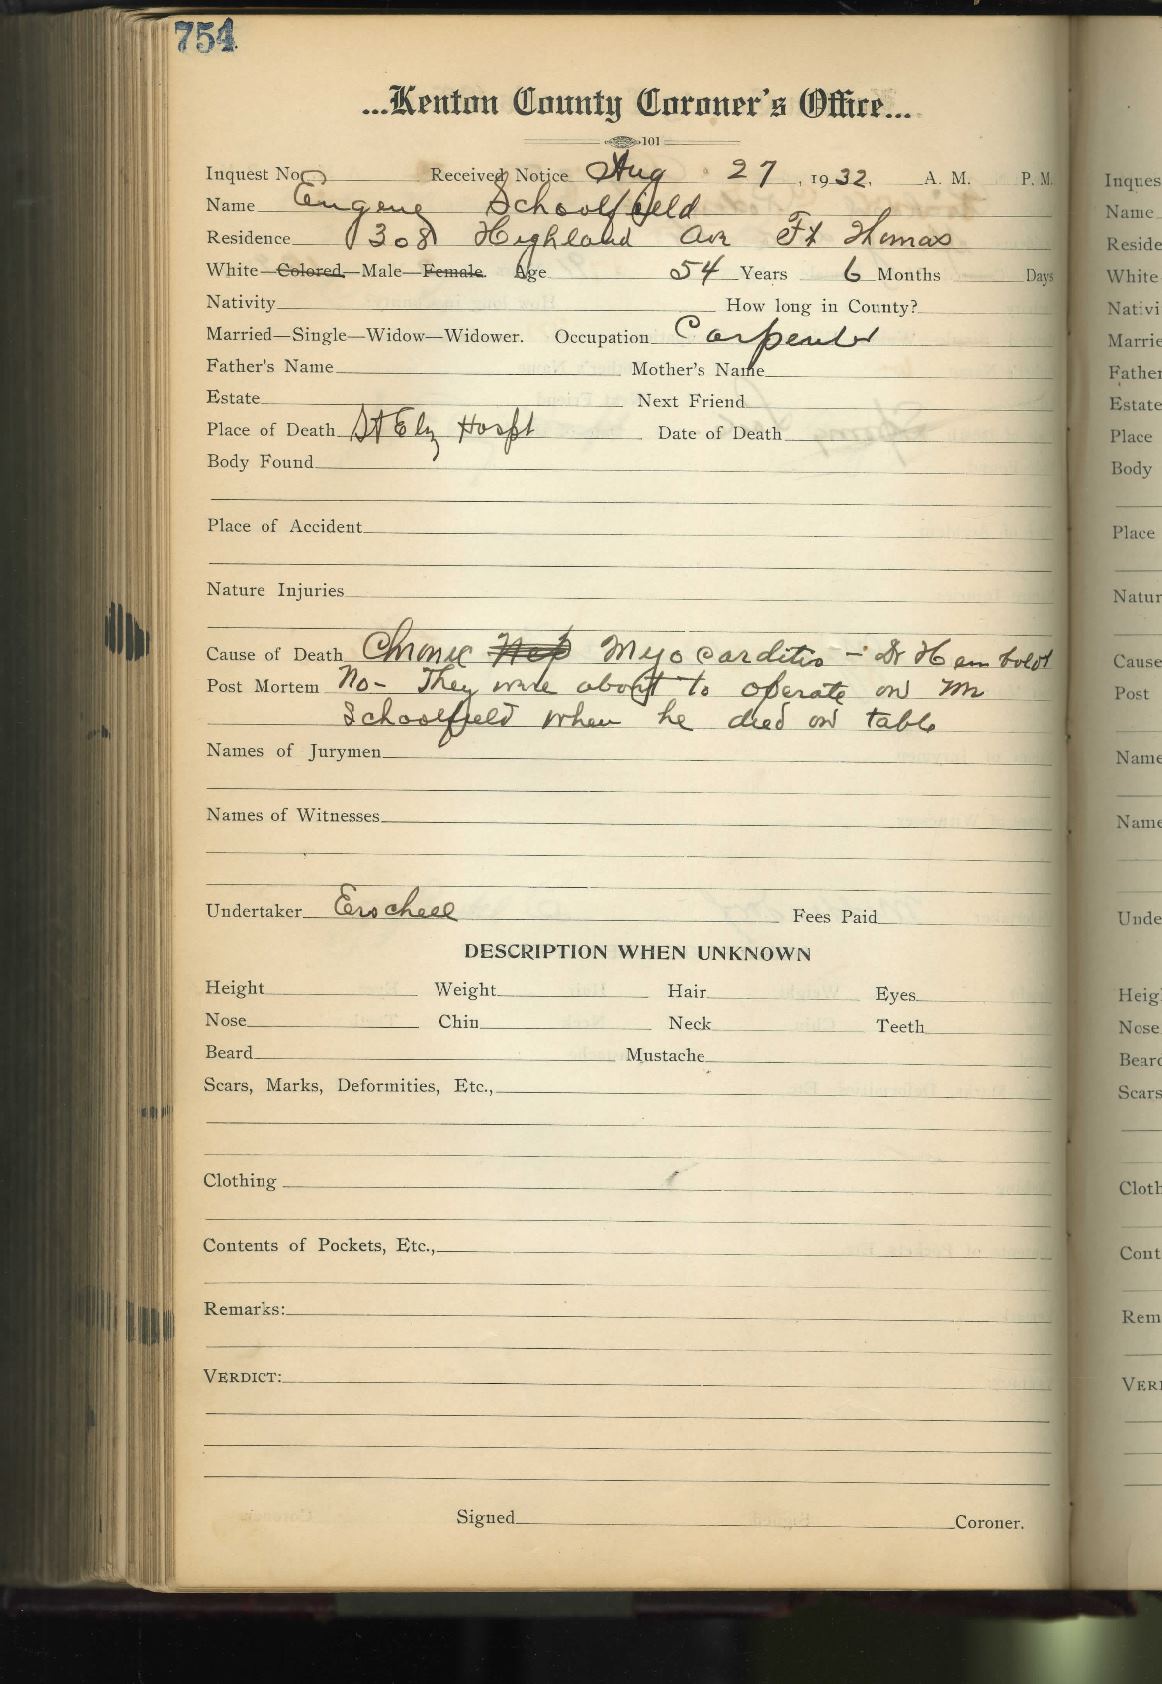 754
...Kenton County Coroner's Office...
101
Inquest No. Received Notice Aug 27, 1932, A. M. P. M.
Name Eugene Schoolfield
Residence 1308 Highland Ave Ft Thomas
White—Colored—Male—Female. Age 54 Years 6 Months Days
Nativity How long in County?
Married—Single—Widow—Widower. Occupation Carpenter
Father's Name Mother's Name
Estate Next Friend
Place of Death St Eliz Hospt Date of Death
Body Found
Place of Accident
Nature Injuries
Cause of Death Chronic Nep Myocarditis - Dr Humboldt
Post Mortem No- They were about to operate on Mr
Schoolfield when he died on table
Names of Jurymen
Names of Witnesses
Undertaker Erschell Fees Paid
DESCRIPTION WHEN UNKNOWN
Height Weight Hair Eyes
Nose Chin Neck Teeth
Beard Mustache
Scars, Marks, Deformities, Etc.,
Clothing
Contents of Pockets, Etc.,
Remarks:
VERDICT:
Signed Coroner.
Inques
Name
Reside
White
Nativi
Marrie
Father
Estate
Place
Body
Place
Natur
Cause
Post
Name
Name
Unde
Heig
Nose
Beard
Scars
Cloth
Cont
Rem
VERI